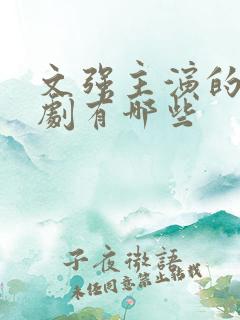 文强主演的
劇有哪些
子夜微語
未经同意禁止転载